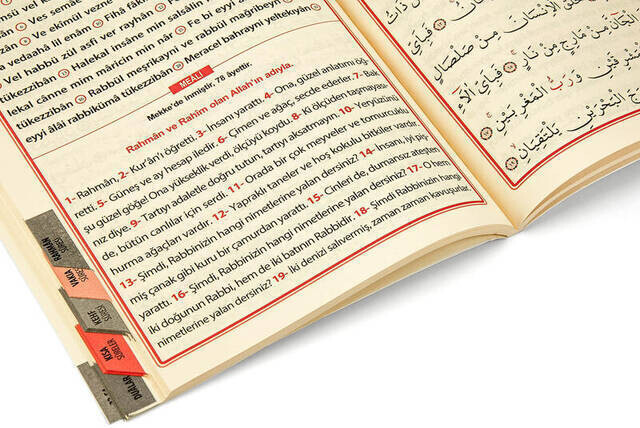 Ve semâe
Ve ekîmûl vezne
vedaahâ lil enâm
Vel habbü zül asfi ver reyhân Fe bi
tükezzibân Halekal insâne min salsâlin
lekal cânne mim mâricin min nâr
tükezzibân Rabbül meşrikayni ve rabbül mağribeyn
eyyi âlâi rabbikümâ tükezzibân Meracel bahrayni yeltekıyân
MEALİ
Mekke'de inmiştir. 78 âyettir.
Rahmân ve Rahîm olan Allah'ın adıyla.
1- Rahmân, 2- Kur'ân'ı öğretti. 3- İnsanı yarattı. 4- Ona, güzel anlatımı öğ-
retti. 5- Güneş ve ay hesap iledir. 6- Çimen ve ağaç, secde ederler. 7- Bak
şu güzel göğe! Ona yükseklik verdi, ölçüyü koydu. 8- Ki ölçüden taşmayası-
nız diye. 9- Tartıyı adaletle doğru tutun, tartıyı aksatmayın. 10- Yeryüzünü
de, bütün canlılar için serdi. 11- Orada bir çok meyveler ve tomurcuklu
hurma ağaçları vardır. 12- Yapraklı taneler ve hoş kokulu bitkiler vardır.
13- Şimdi, Rabbinizin hangi nimetlerine yalan dersiniz? 14- İnsanı, iyi piş-
miş çanak gibi kuru bir çamurdan yarattı. 15- Cinleri de, dumansız ateşten
yarattı. 16- Şimdi, Rabbinizin hangi nimetlerine yalan dersiniz? 17- O hem
iki doğunun Rabbi, hem de iki batının Rabbidir. 18- Şimdi Rabbinizin hangi
nimetlerine yalan dersiniz? 19- İki denizi salıvermiş, zaman zaman kavuşurlar.
RAHMÂN SÛRESİ
VAKIA SÛRESİ
KEHF SÛRESİ
KISA SÛRELER
DUALAR
ذَاتُ
الْاِنْسَانَ مِنْ صَلْصَالٍ
الْجَانَّ مِنْ مَارِجٍ مِنْ نَارٍ فَبِاَىِّ
وَرَبُّ الْمَغْرِبَيْنِ فَبِاَىِّ اٰلَٓاءِ
الْبَحْرَيْنِ يَلْتَقِيَانِ